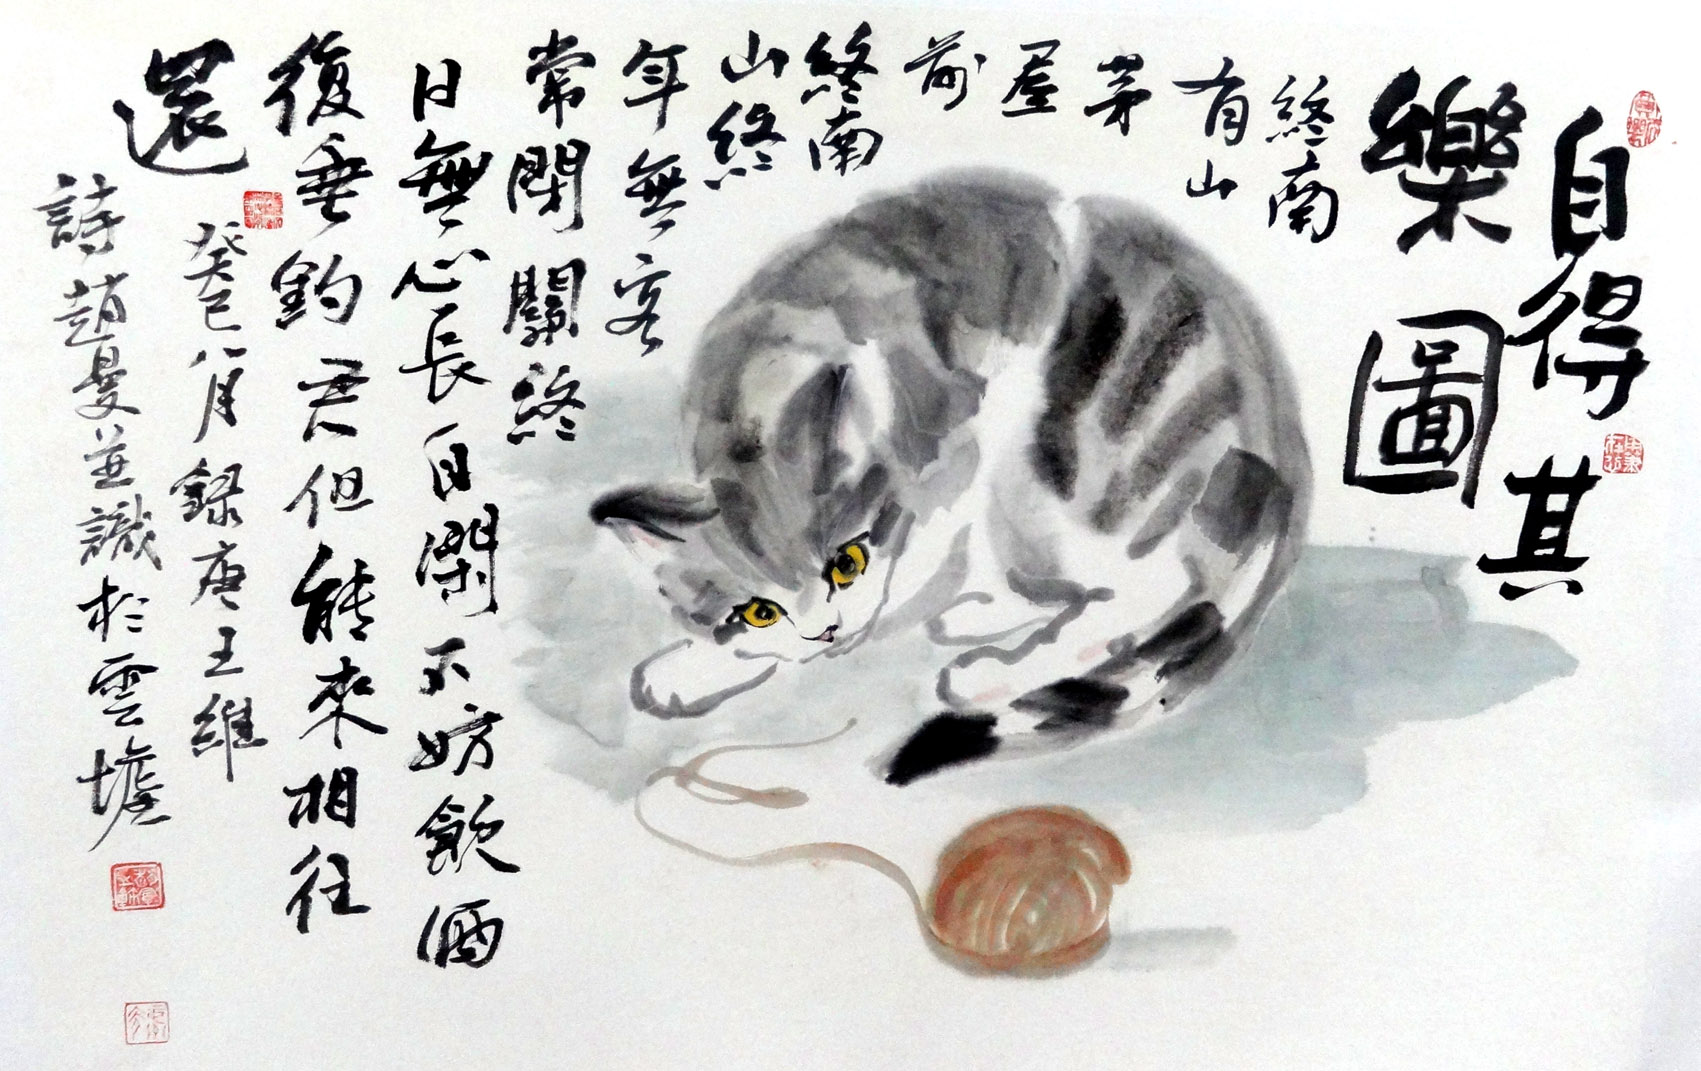 自得其
樂圖
終南
有山
茅
屋
前
終南
山終
年無客
常閉關終
日無心長自閑不妨飲酒
復垂釣君但能來相往
還
癸巳八月録唐王維
詩趙曼並識於雲